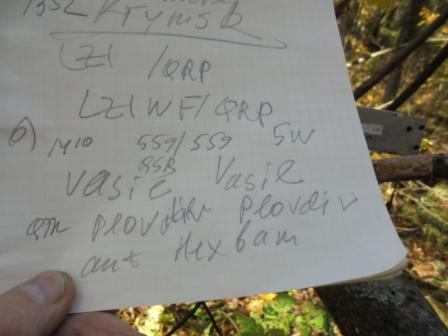 LZ1 /QRP
LZ1WF/QRP
6) 1410 559/559 5W
QSB
Vasil Vasil
QTH Plovdiv Plovdiv
ant Hexbam